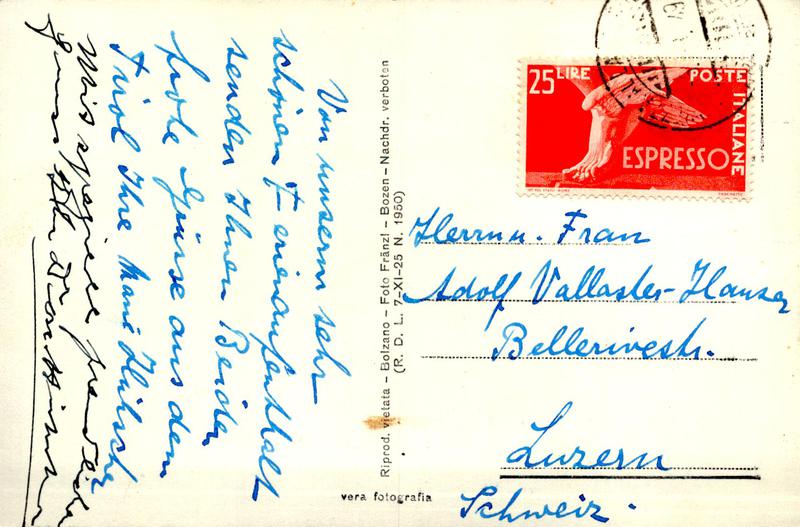 Von unserm sehr
schönen Ferienaufenthalt
senden Ihnen Beiden
frohe Grüsse aus dem
Tirol Ihre
Riprod. vietata – Bolzano – Foto Fränzl – Bozen – Nachdr. verboten
(R. D. L. 7-XI-25 N. 1950)
vera fotografia
25 LIRE POSTE ITALIANE
ESPRESSO
Herrn u. Frau
Adolf Vallaster-Hauser
Bellerivestr.
Luzern
Schweiz.